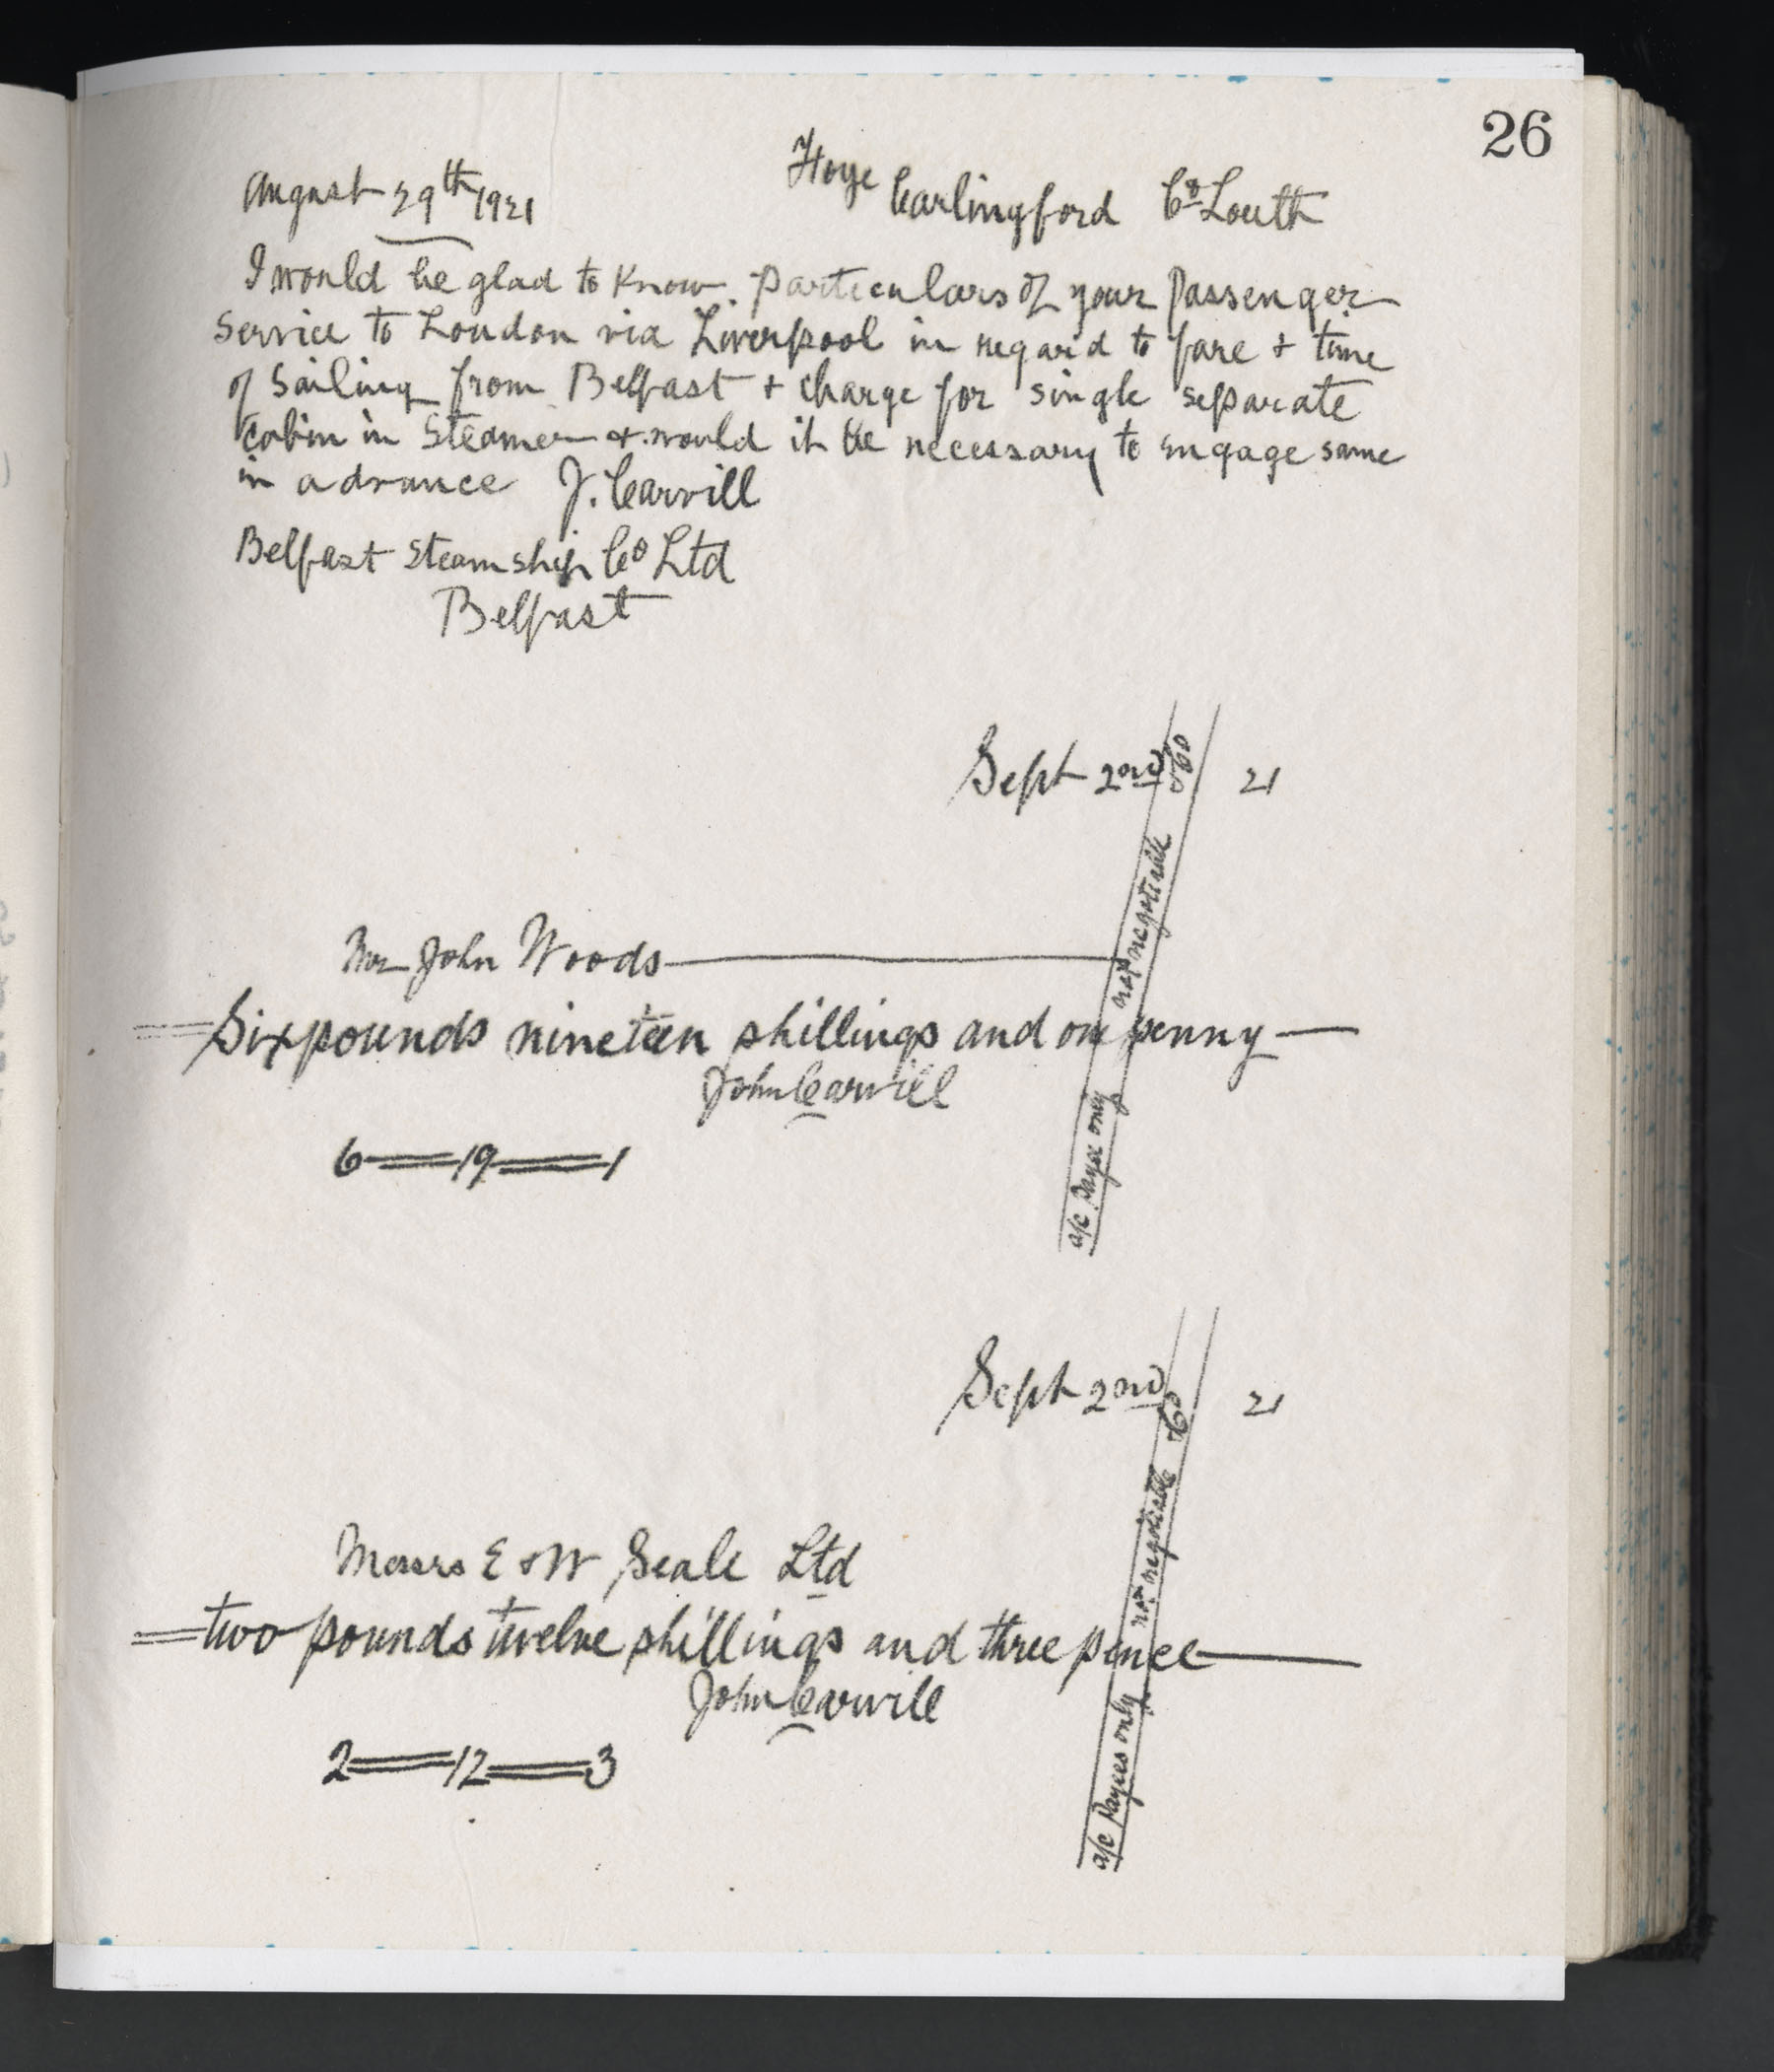 26
August 29th 1921
Hoye Carlingford Co Louth
I would be glad to know particulars of your passenger
service to London via Liverpool in regard to fare + time
of sailing from Belfast + charge for single separate
cabin in steamer + would it be necessary to engage same
in advance J. Carvill
Belfast Steamship Co Ltd
Belfast
Sept 2nd 21
Mr John Woods
Six pounds nineteen shillings and one penny
John Carvill
6 = 19 = 1
a/c Payee only not negotiable & Co
Sept 2nd 21
Messrs E & W Seale Ltd
two pounds twelve shillings and three pence
John Carvill
2 = 12 = 3
a/c Payees only not negotiable & Co